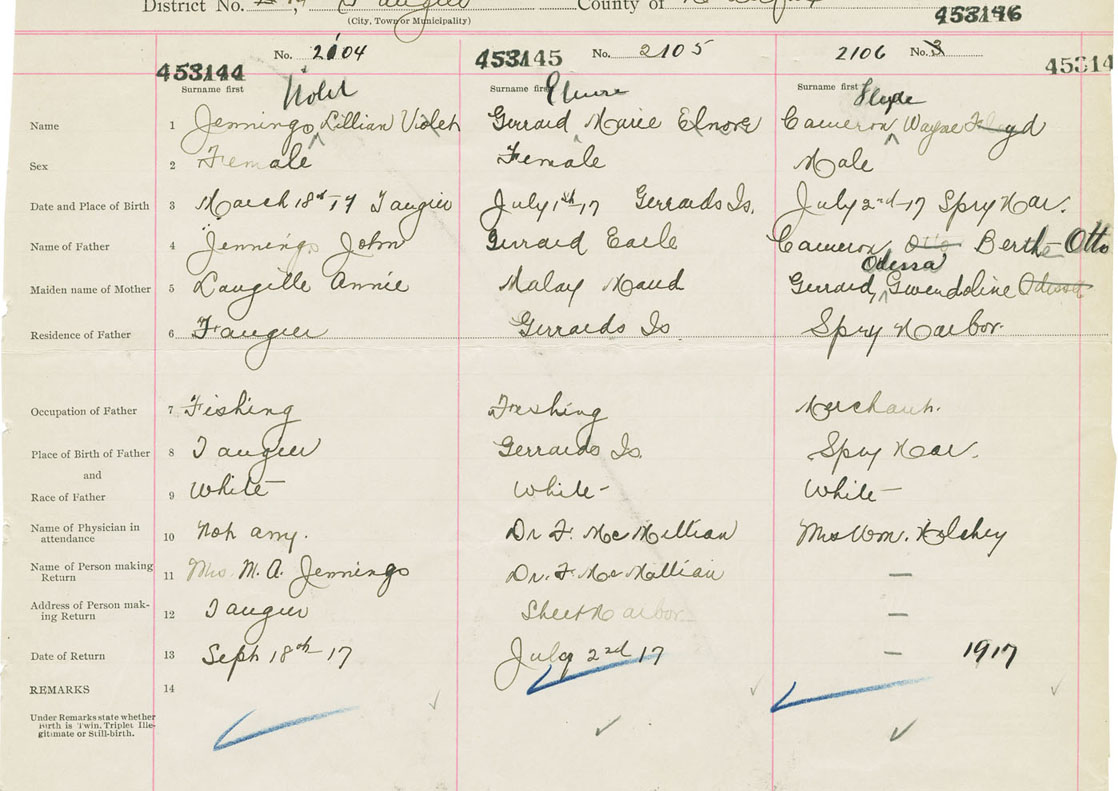 District No. Tangier County of Halifax
(City, Town or Municipality)
453144 No. 2104 453145 No. 2105 2106 No. 3 453146
Surname first Violet Surname first Elnore Surname first
Name 1 Jennings Lillian Violet Gerrard Marie Elnore Cameron Wayne
Sex 2 Female Female Male
Date and Place of Birth 3 March 18th 17 Tangier July 1th 17 Gerrards Is. July 2nd 17 Spry Har.
Name of Father 4 Jennings John Gerrard Earle Cameron Otto Berthe Otto
Odessa
Maiden name of Mother 5 Langille Annie Malay Maud Gerrard, Gwendoline Odessa
Residence of Father 6 Tangier Gerrards Is Spry Harbor.
Occupation of Father 7 Fishing Fishing Merchant.
Place of Birth of Father 8 Tangier Gerrards Is. Spry Har.
and
Race of Father 9 White White White
Name of Physician in attendance 10 Not any. Dr F. McMillian Mrs Wm.
Name of Person making Return 11 Mrs. M. A. Jennings Dr. F. McMillian —
Address of Person making Return 12 Tangier Sheet Harbor —
Date of Return 13 Sept 18th 17 July 2nd 17 — 1917
REMARKS 14
Under Remarks state whether
Birth is Twin, Triplet Ille-
gitimate or Still-birth.